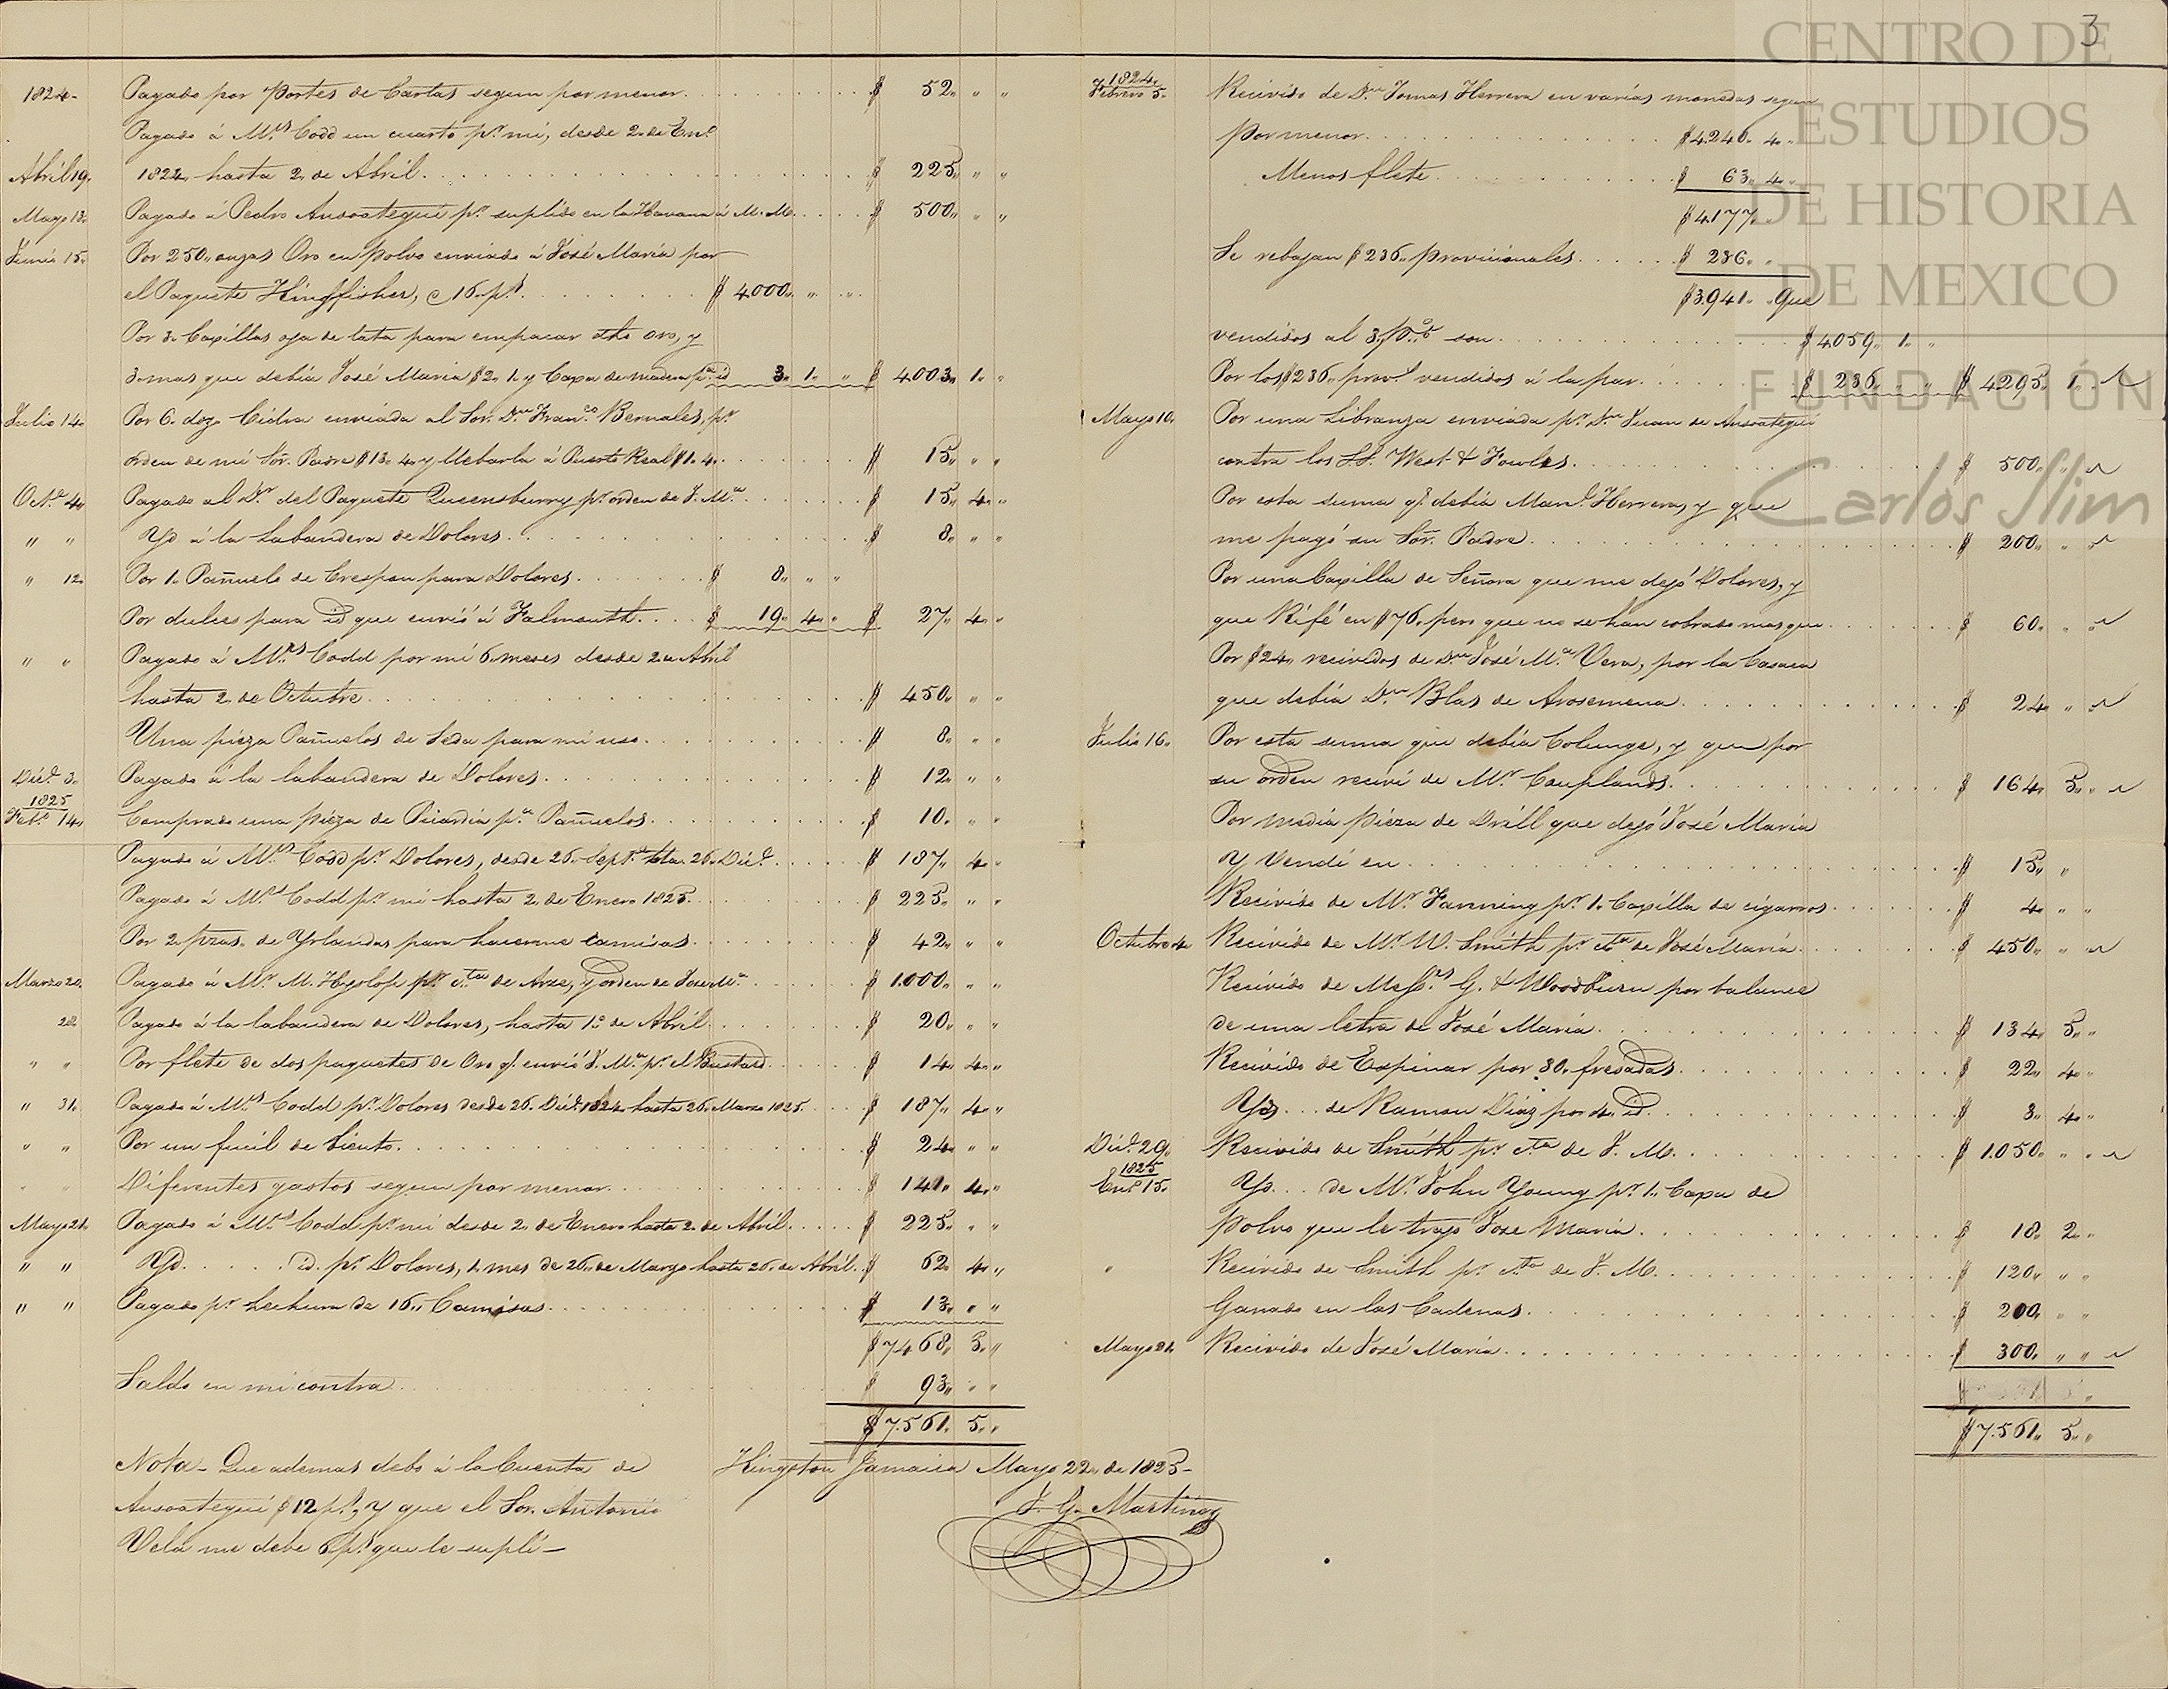 3
CENTRO DE
ESTUDIOS
DE HISTORIA
DE MEXICO
FUNDACIÓN
Carlos Slim
1824- Pagado por Portes de Cartas segun por menor. $ 52,, ,, ,,
Pagado á M.rs Codd un cuarto p.r mi, desde 2,, de En.o
Abril 19,, 1824,, hasta 2,, de Abril. $ 225,, ,, ,,
Mayo 13,, Pagado á Pedro Ansoategui p.r suplido en la Havana á M. M. $ 500,, ,, ,,
Junio 15,, Por 250,, onzas Oro en polvo enviado á José Maria por
el Paquete Kingfisher, @ 16,, p.s $ 4000,, ,, ,,
Por 3,, Caxillas oja de lata para empacar dho oro, y
3,, mas que debia José Maria $2,, 1,, y Caxa de madera p.a id 3,, 1,, ,, $ 4003,, 1,, ,,
Julio 14,, Por 6,, doz,, Cidra enviada al Sor. D.n Fran.co Bernales, p.r
orden de mi Sör. Padre $13,, 4,, y llebarla á Puerto Real $1,, 4,, $ 15,, ,, ,,
Oct.e 4,, Pagado al D.r del Paquete Queensburry p.r orden de J. M.a $ 15,, 4,, ,,
,, ,, Yd á la Labandera de Dolores. $ 8,, ,, ,,
,, 12,, Por 1,, Pañuelo de Crespon para Dolores. $ 8,, ,, ,,
Por dulces para id que envió á Falmouth. $ 19,, 4,, ,, $ 27,, 4,, ,,
,, ,, Pagado á M.rs Codd por mi 6,, meses desde 2,, Abril
hasta 2,, de Octubre. $ 450,, ,, ,,
Una pieza Pañuelos de Seda para mi uso. $ 8,, ,, ,,
Dic.e 3,, Pagado á la labandera de Dolores. $ 12,, ,, ,,
1825
Feb.o 14,, Comprado una pieza de Picardia p.a Pañuelos. $ 10,, ,, ,,
Pagado á M.rs Codd p.r Dolores, desde 26,, Sept.e hta. 26,, Dic.e $ 187,, 4,, ,,
Pagado á M.rs Codd p.r mi hasta 2,, de Enero 1825. $ 225,, ,, ,,
Por 2,, pzas,, de Yrlandas para hacerme camisas. $ 42,, ,, ,,
Marzo 20,, Pagado á M.r M. Hyslop p.r c.ta de Arze, y orden de Jose M.a $ 1.000,, ,, ,,
28,, Pagado á la labandera de Dolores, hasta 1.o de Abril. $ 20,, ,, ,,
,, ,, Por flete de dos paquetes de Oro q.e envió J. M.a p.r el Bustard. $ 14,, 4,, ,,
,, 31,, Pagado á M.rs Codd p.r Dolores desde 26,, Dic.e 1824,, hasta 26,, Marzo 1825. $ 187,, 4,, ,,
,, ,, Por un fucil de biento. $ 24,, ,, ,,
Diferentes gastos segun por menor. $ 141,, 4,, ,,
Mayo 21,, Pagado á M.rs Codd p.r mi desde 2,, de Enero hasta 2,, de Abril. $ 225,, ,, ,,
,, ,, Yd. id. p.r Dolores, 1,, mes de 26,, de Marzo hasta 26,, de Abril. $ 62,, 4,, ,,
,, ,, Pagado p.r hechura de 16,, Camisas. $ 13,, ,, ,,
$ 7468,, 5,, ,,
Saldo en mi contra. $ 93,, ,, ,,
$ 7.561,, 5,, ,,
Nota- Que ademas debo á la Cuenta de
Ansoategui $12 p.s, y que el Sor. Antonio
Vela me debe 6 p.s que le suplí-
1824,,
Febrero 5,, Recivido de D.n Tomas Herrera en varias monedas segun
por menor. $ 4.240,, 4,, ,,
Menos flete. $ 63,, 4,, ,,
$ 4.177,, ,,
Se rebajan $ 236,, provicionales. $ 236,, ,,
$ 3.941,, ,, que
vendidos al 3,, P.o% son. $ 4059,, 1,, ,,
Por los $ 236,, prov.s vendidos á la par. $ 236,, ,, ,, $ 4295,, 1,, ,,
Mayo 10,, Por una Libranza enviada p.r D.n Juan de Ansoategui
contra los SS. West & Fowles. $ 500,, ,, ,,
Por esta suma q.e debia Man.l Herrera, y que
me pagó su Sör. Padre. $ 200,, ,, ,,
Por una Caxilla de Señora que me dejó Dolores, y
que Rifé en $ 76,, pero que no se han cobrado mas que. $ 60,, ,, ,,
Por $ 24,, recividos de D.n José M.a Vera, por la Casaca
que debia D.n Blas de Arosemena. $ 24,, ,, ,,
Julio 16,, Por esta suma que debia Colunge, y que por
su orden recivi de M.r Couplands. $ 164,, 5,, ,,
Por media pieza de Drill que dejó José Maria
y Vendí en $ 15,, ,,
Recivido de M.r Fanning p.r 1,, Caxilla de cigarros. $ 4,, ,, ,,
Octubre 4,, Recivido de M.r W. Smith p.r c.ta de José Maria. $ 450,, ,, ,,
Recivido de Mess.rs G. & Woodburn por balance
de una letra de José Maria. $ 134,, 5,, ,,
Recivido de Espinar por 30,, fresadas. $ 22,, 4,, ,,
Yd. de Ramon Diaz por 4,, id. $ 3,, 4,, ,,
Dic.e 29,, Recivido de Smith p.r c.ta de J. M. $ 1.050,, ,, ,,
1825
En.o 15,, Yd. de M.r John Young p.r 1,, Caxa de
Polvo que le trajo Jose Maria. $ 18,, 2,, ,,
,, Recivido de Smith p.r c.ta de J. M. $ 120,, ,, ,,
Ganado en las Cadenas. $ 200,, ,, ,,
Mayo 21,, Recivido de José Maria. $ 300,, ,, ,,
$ 7.561,, 5,, ,,
Kingston Jamaica Mayo 22,, de 1825-
J. G. Martinez